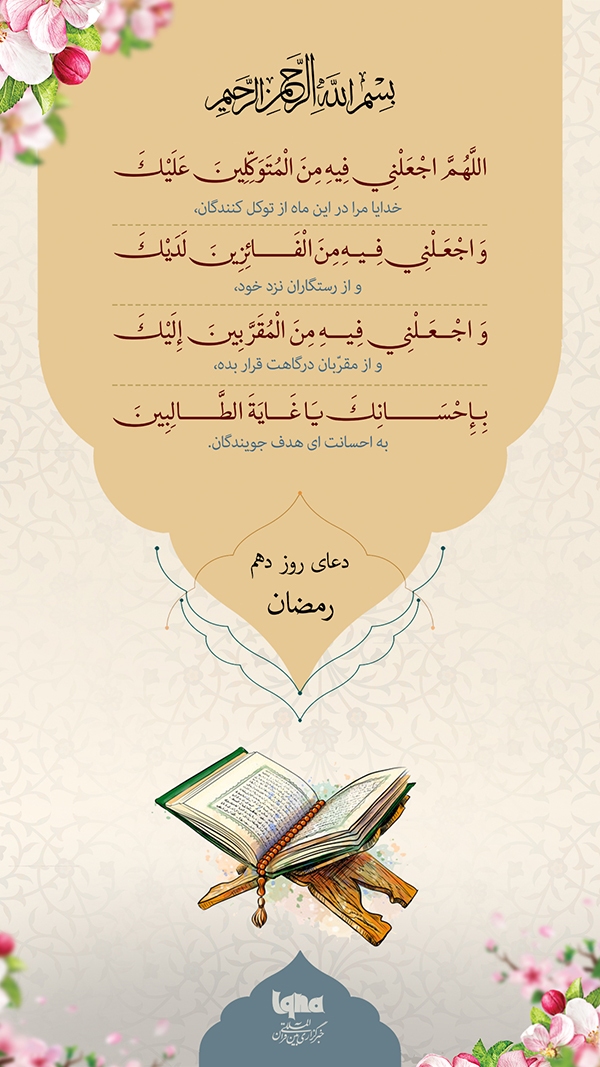 بِسْمِ اللَّهِ الرَّحْمَنِ الرَّحِيمِ
اللَّهُمَّ اجْعَلْنِي فِيهِ مِنَ الْمُتَوَكِّلِينَ عَلَيْكَ
خدایا مرا در این ماه از توکل کنندگان،
وَ اجْعَلْنِي فِيهِ مِنَ الْفَائِزِينَ لَدَيْكَ
و از رستگاران نزد خود،
وَ اجْعَلْنِي فِيهِ مِنَ الْمُقَرَّبِينَ إِلَيْكَ
و از مقرّبان درگاهت قرار بده،
بِإِحْسَانِكَ يَا غَايَةَ الطَّالِبِينَ
به احسانت ای هدف جویندگان.
دعای روز دهم
رمضان
iqna
خبرگزاری بین المللی قرآن